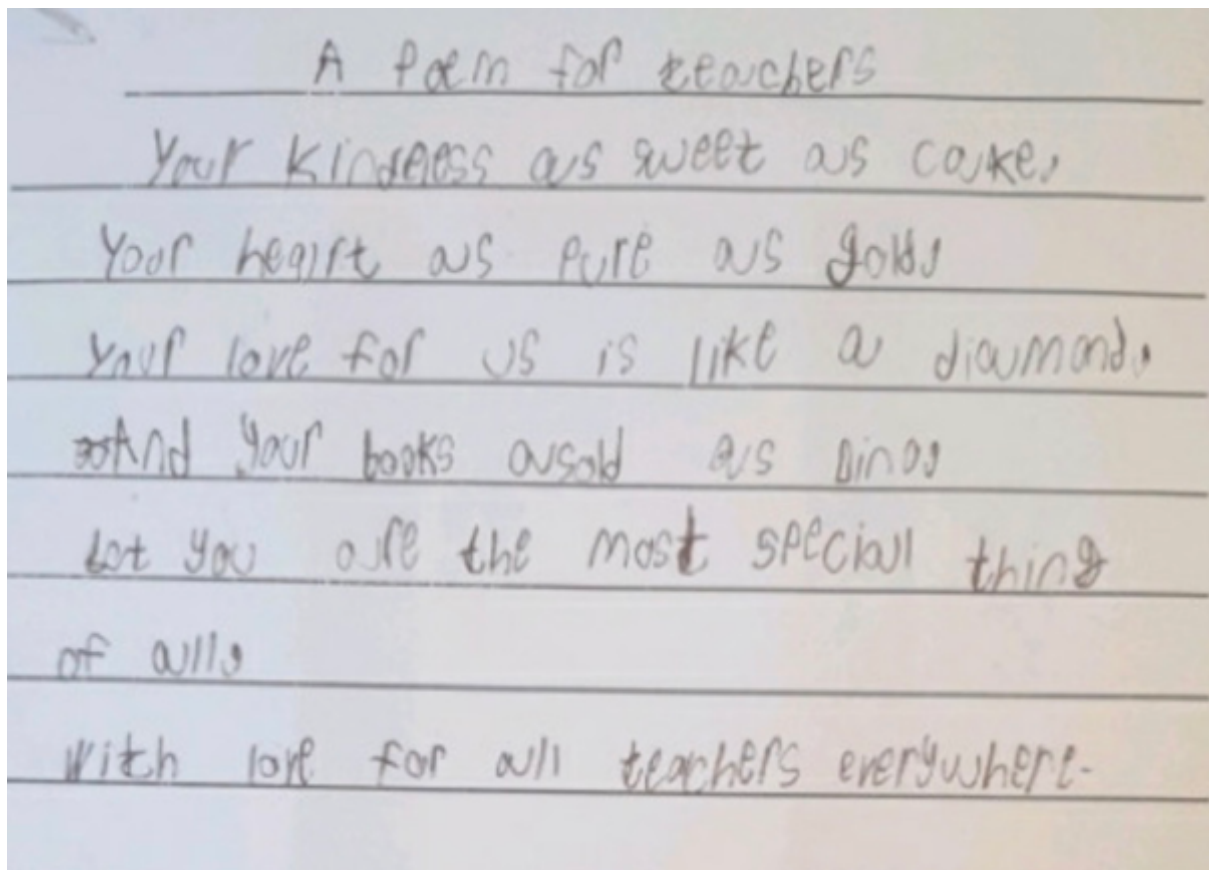 A Poem for teachers
Your Kindness as sweet as cake,
Your heart as pure as gold,
Your love for us is like a diamond,
And your books as old as Dino,
but you are the most special thing
of all,
With love for all teachers everywhere.